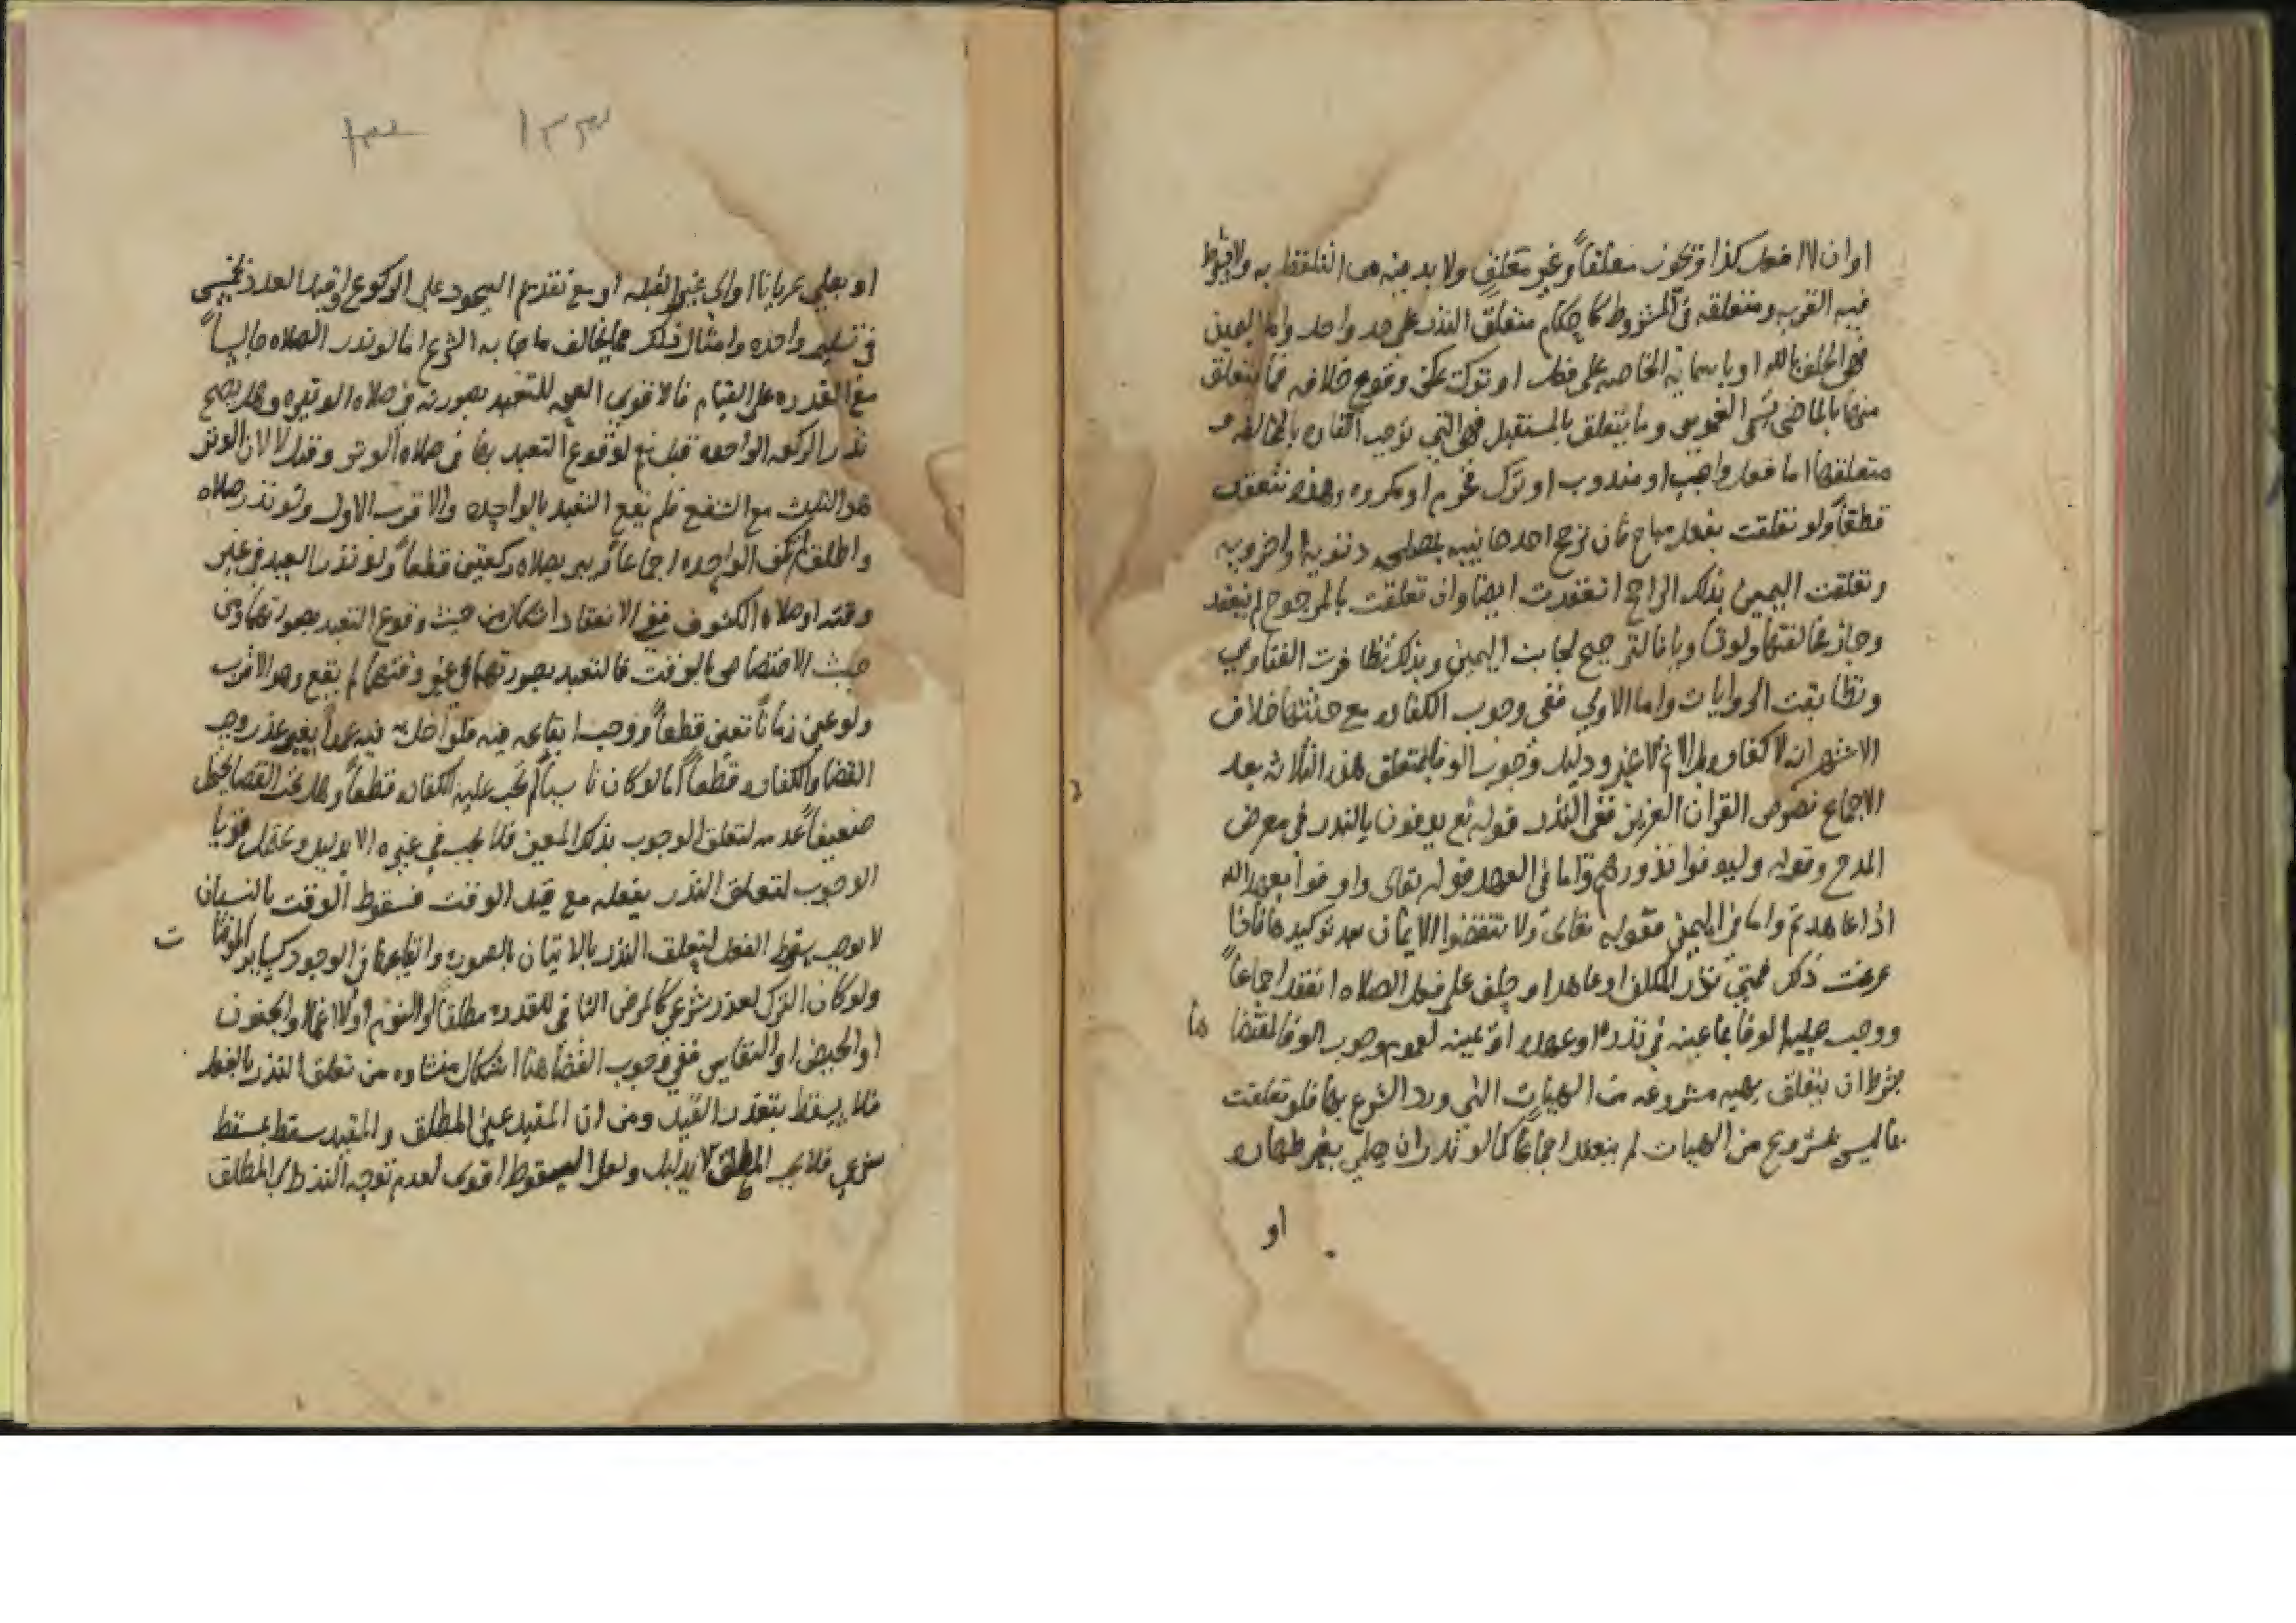 او ان لا افعل كذا وتكون متعلقاً وغير متعلق ولا بد فيه من التلفظ به ولا يشترط
فيه القربه ومتعلقه في المشروط كاحكام متعلق النذر على حد واحد واما اليمين
فهي الحلف بالله او باسمائه الخاصه على فعل او ترك يمكن وقوع خلافه فما يتعلق
منها بالماضي يسمى الغموس وما يتعلق بالمستقبل فهي التي توجب الكفاره بالمخالفه و
متعلقها اما فعل واجب او مندوب او ترك محرم او مكروه وهذه تنعقد
قطعاً ولو تعلقت بفعل مباح فان ترجح احد جانبيه بمصلحه دنيويه او اخرويه
وتعلقت اليمين بذلك الراجح انعقدت ايضا وان تعلقت بالمرجوح لم ينعقد
وجاز مخالفتها ولو تساويا فالترجيح لجانب اليمين وبذلك تظافرت الفتاوي
وتطابقت الروايات واما الاولي ففي وجوب الكفاره مع حنثها خلاف
الاشهر ان لا كفاره الا الاثم لا غير ودليل وجوب الوفا بمتعلق هذه الثلاثه بعد
الاجماع نصوص القران العزيز ففي النذر قوله تع يوفون بالنذر في معرض
المدح وقوله وليوفوا نذورهم واما في العهد قوله تعالى واوفوا بعهد الله
اذا عاهدتم واما في اليمين فقوله تعالى ولا تنقضوا الايمان بعد توكيدها فاذا
عرفت ذلك فمتي نذر المكلف او عاهد او حلف على فعل الصلاه انعقد اجماعاً
ووجب عليه الوفا بما عينه في نذره او عهده او يمينه لعموم وجوب الوفا بمقتضا ها
بشرط ان يتعلق بهيه مشروعه من الهيات التي ورد الشرع بها فلو تعلقت
بما ليس بمشروع من الهيات لم ينعقد اجماعاً كما لو نذر ان يصلي بغير طهاره
او
١٣٣
او يصلي عريانا او الي غير القبله او مع تقديم السجود على الركوع او قيد العدد بخمس
في تسليمه واحده وامثال ذلك مما يخالف ما جا به الشرع اما لو نذر الصلاه جالساً
مع القدره على القيام فالاقوي الصحه للتعبد بصورته في صلاه الوتيره وهل يصح
نذر الركعه الواحده قيل نعم لوقوع التعبد بها في صلاه الوتر وقيل لا لان الوتر
هو الثلث مع الشفع فلم يقع التعبد بالواحده والاقرب الاول ولو نذر صلاه
واطلق لم تكف الواحده اجماعاً ويبر بصلاه ركعتين قطعاً ولو نذر العيد في غير
وقته او صلاه الكسوف ففي الانعقاد اشكال من حيث وقوع التعبد بصورتهما ومن
حيث الاختصاص بالوقت فالتعبد بصورتهما في غير وقتهما لم يقع وهو الاقرب
ولو عين زماناً تعين قطعاً ووجب ايقاعه فيه فلو اخل به فيه عمداً بغير عذر وجب
القضا والكفاره قطعاً اما لو كان ناسياً لم تجب عليه الكفاره قطعاً وهل يجب القضا يحتمل
ضعيفاً عدمه لتعلق الوجوب بذلك المعين فلا يجب في غيره الا بدليل ويحتمل قويا
الوجوب لتعلق النذر بفعله مع قيد الوقت فسقوط الوقت بالنسيان
لا يوجب سقوط الفعل لتعلق النذر بالاتيان بالصوره وايقاعها في الوجود كساير الموقتا ت
ولو كان الترك لعذر شرعي كالمرض النافي للقدره مطلقا او النوم او الاغما او الجنون
او الحيض او النفاس ففي وجوب القضا هنا اشكال منشاوه من تعلق النذر بالفعل
فلا يسقط بتعذر القيد ومن ان المقيد غير المطلق والمقيد سقط بمسقط
شرعي فلا يجب المطلق الا بدليل ولعل السقوط اقوى لعدم توجه النذر الى المطلق